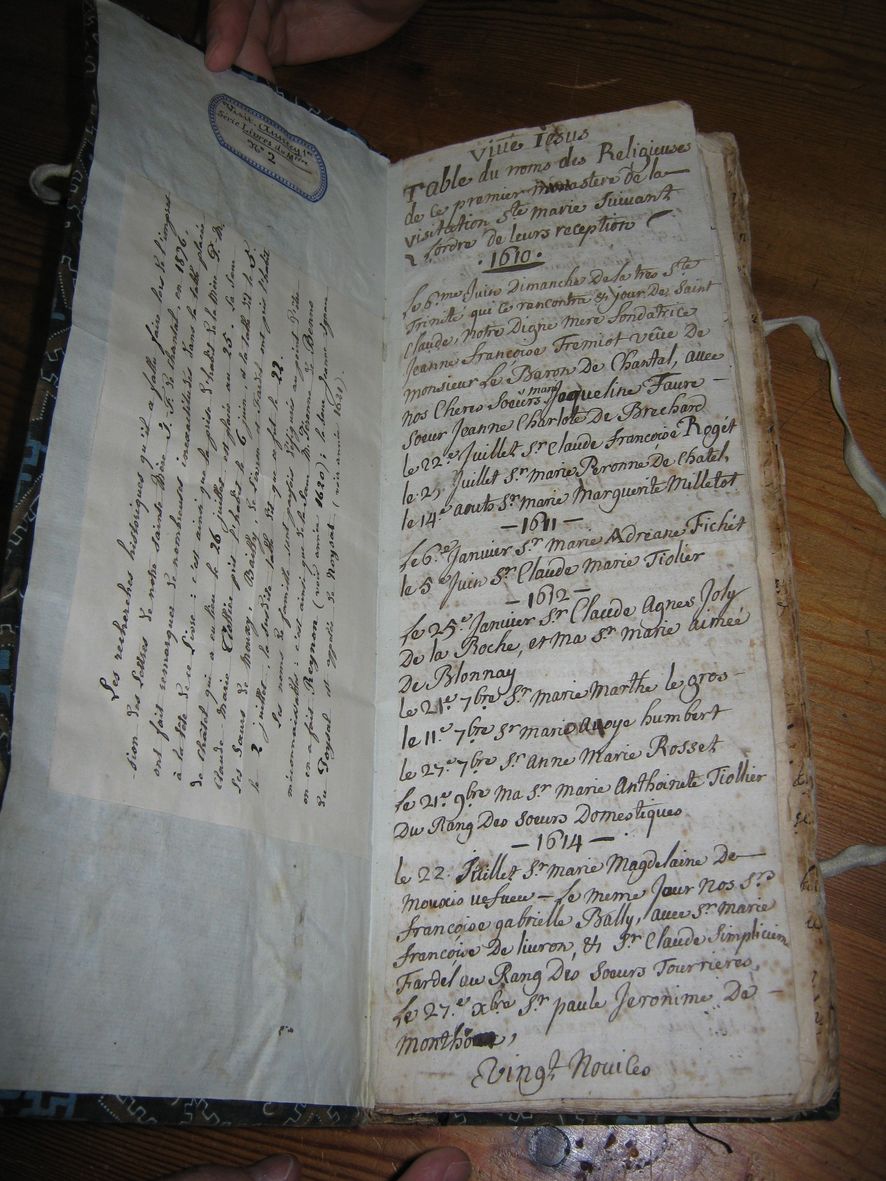 Visit. Annecy 1re
Série Livres du Mtre
No 2
Les recherches historiques qu'il a fallu faire lors de l'impres
sion des Lettres de notre sainte Mère J. F. de Chantal, en 1876,
ont fait remarquer de nombreuses inexactitudes dans la table placée
à la tête de ce Livre : c'est ainsi que la prise d'habit de la Mère P. M.
de Châtel qui a eu lieu le 26 juillet, est placée au 25, la Soeur
Claude Marie Thiollier prit l'habit le 6 juin, et la table dit le 5.
Les Soeurs de Mouxy, Bailly, de Livron et Fardel ont pris l'habit
le 2 juillet; la susdite table dit que ce fut le 22.
Les noms de famille sont parfois défigurés au point d'être
méconnaissables : c'est ainsi que de la Soeur M. Péronne de Benono
on en a fait Reynon (voir année 1620); la Soeur Jeanne-
du Peysal est appelée de Noysat (voir année 1621).
Viue Iesus
Table du noms des Religieuse
de ce premier monastere de la
visitation Ste marie Suivant
L'ordre de leurs reception
.1610.
Le 6.me Juin Dimanche De la tres Ste
Trinité qui ce rencontra & jour De Saint
Claude, Notre Digne mere fondatrice
Jeanne françoise Fremiot veûe De
monsieur Le Baron De Chantal, auec
nos Cheres Soeurs marie Jaqueline Faure
Soeur Jeanne Charlote De Brechard
le 22.e Juillet Sr. Claude françoise Rogét
le 25 Juillet Sr. marie Peronne De Chatel,
le 14.e aouts Sr. marie Marguerite Milletot
—1611—
Le 6.e Janvier Sr. Marie Adreane Fichét
le 5.e Juin Sr. Claude Marie Tiolier
—1612—
Le 25.e Janvier Sr. Claude Agnes Joly
De la Roche, et ma Sr. marie aimée
De Blonnay
le 21.e 7bre Sr. Marie Marthe le gros
le 11.e 7bre Sr marie Auoye humbert
le 27.e 7bre Sr. Anne Marie Rosset
le 21.e 9bre Ma Sr. marie Anthoinete Tiollier
Du Rang Des Soeurs Domestiques
—1614—
le 22. Juillet Sr. marie Magdelaine De
Mouxio vefueu — Le meme Jour Nos Srs
françoise gabrielle Bally, auec Sr. Marie
françoise De liuron, & Sr. Claude Simplicien
Fardel au Rang Des Soeurs Tourrieres,
Le 27.e xbre Sr. paule Jeronime De
Vingt Nouices